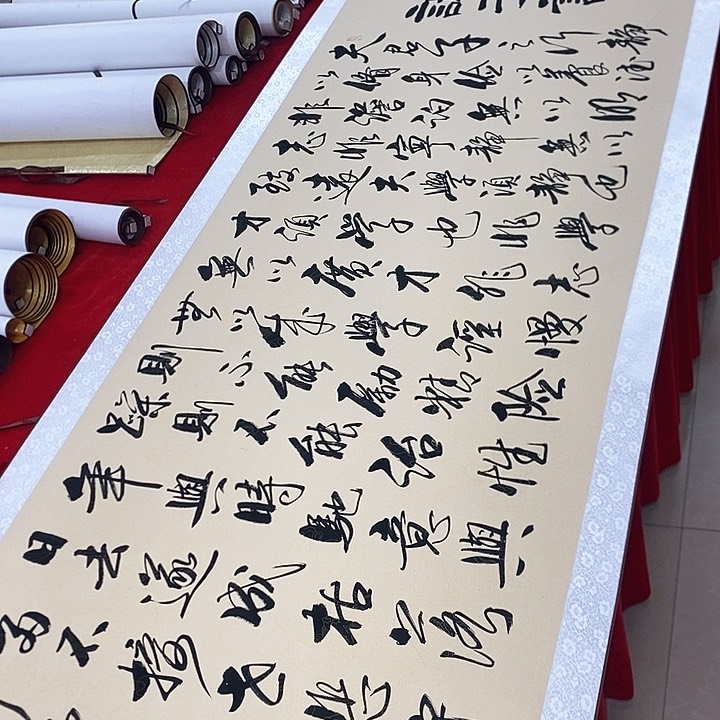 夫君子之行靜
以脩身儉以養德
非澹泊無以明
志非寧靜無以
致遠夫學須靜也
才須學也非學
無以廣才非志
無以成學淫慢
則不能勵精險
躁則不能治性
年與時馳意與
日去遂成枯落
多不接世悲